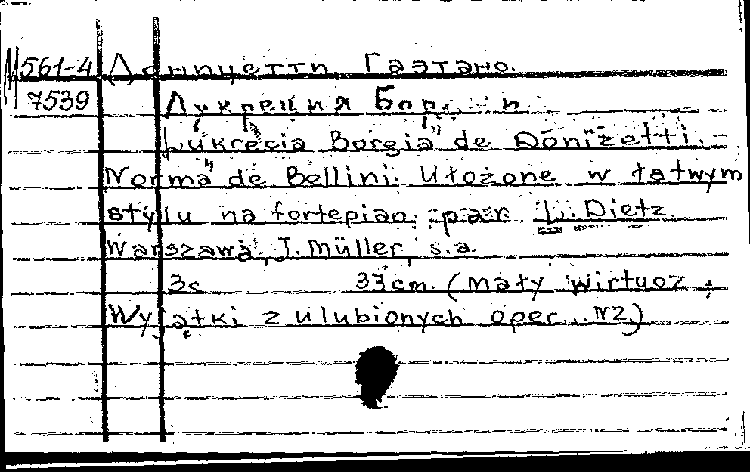 М 561-4 Доницетти, Гаэтано.
7539 Лукреция
"Lukrecia Borgia" de Donizetti. -
"Norma" de Bellini. Ułożone w łatwym
stylu na fortepiao. przez L. Dietz.
Warszawa, J. Müller, s.a.
3c 33cm. (Mały Wirtuoz.
Wyjątki z ulubionych oper. N2)